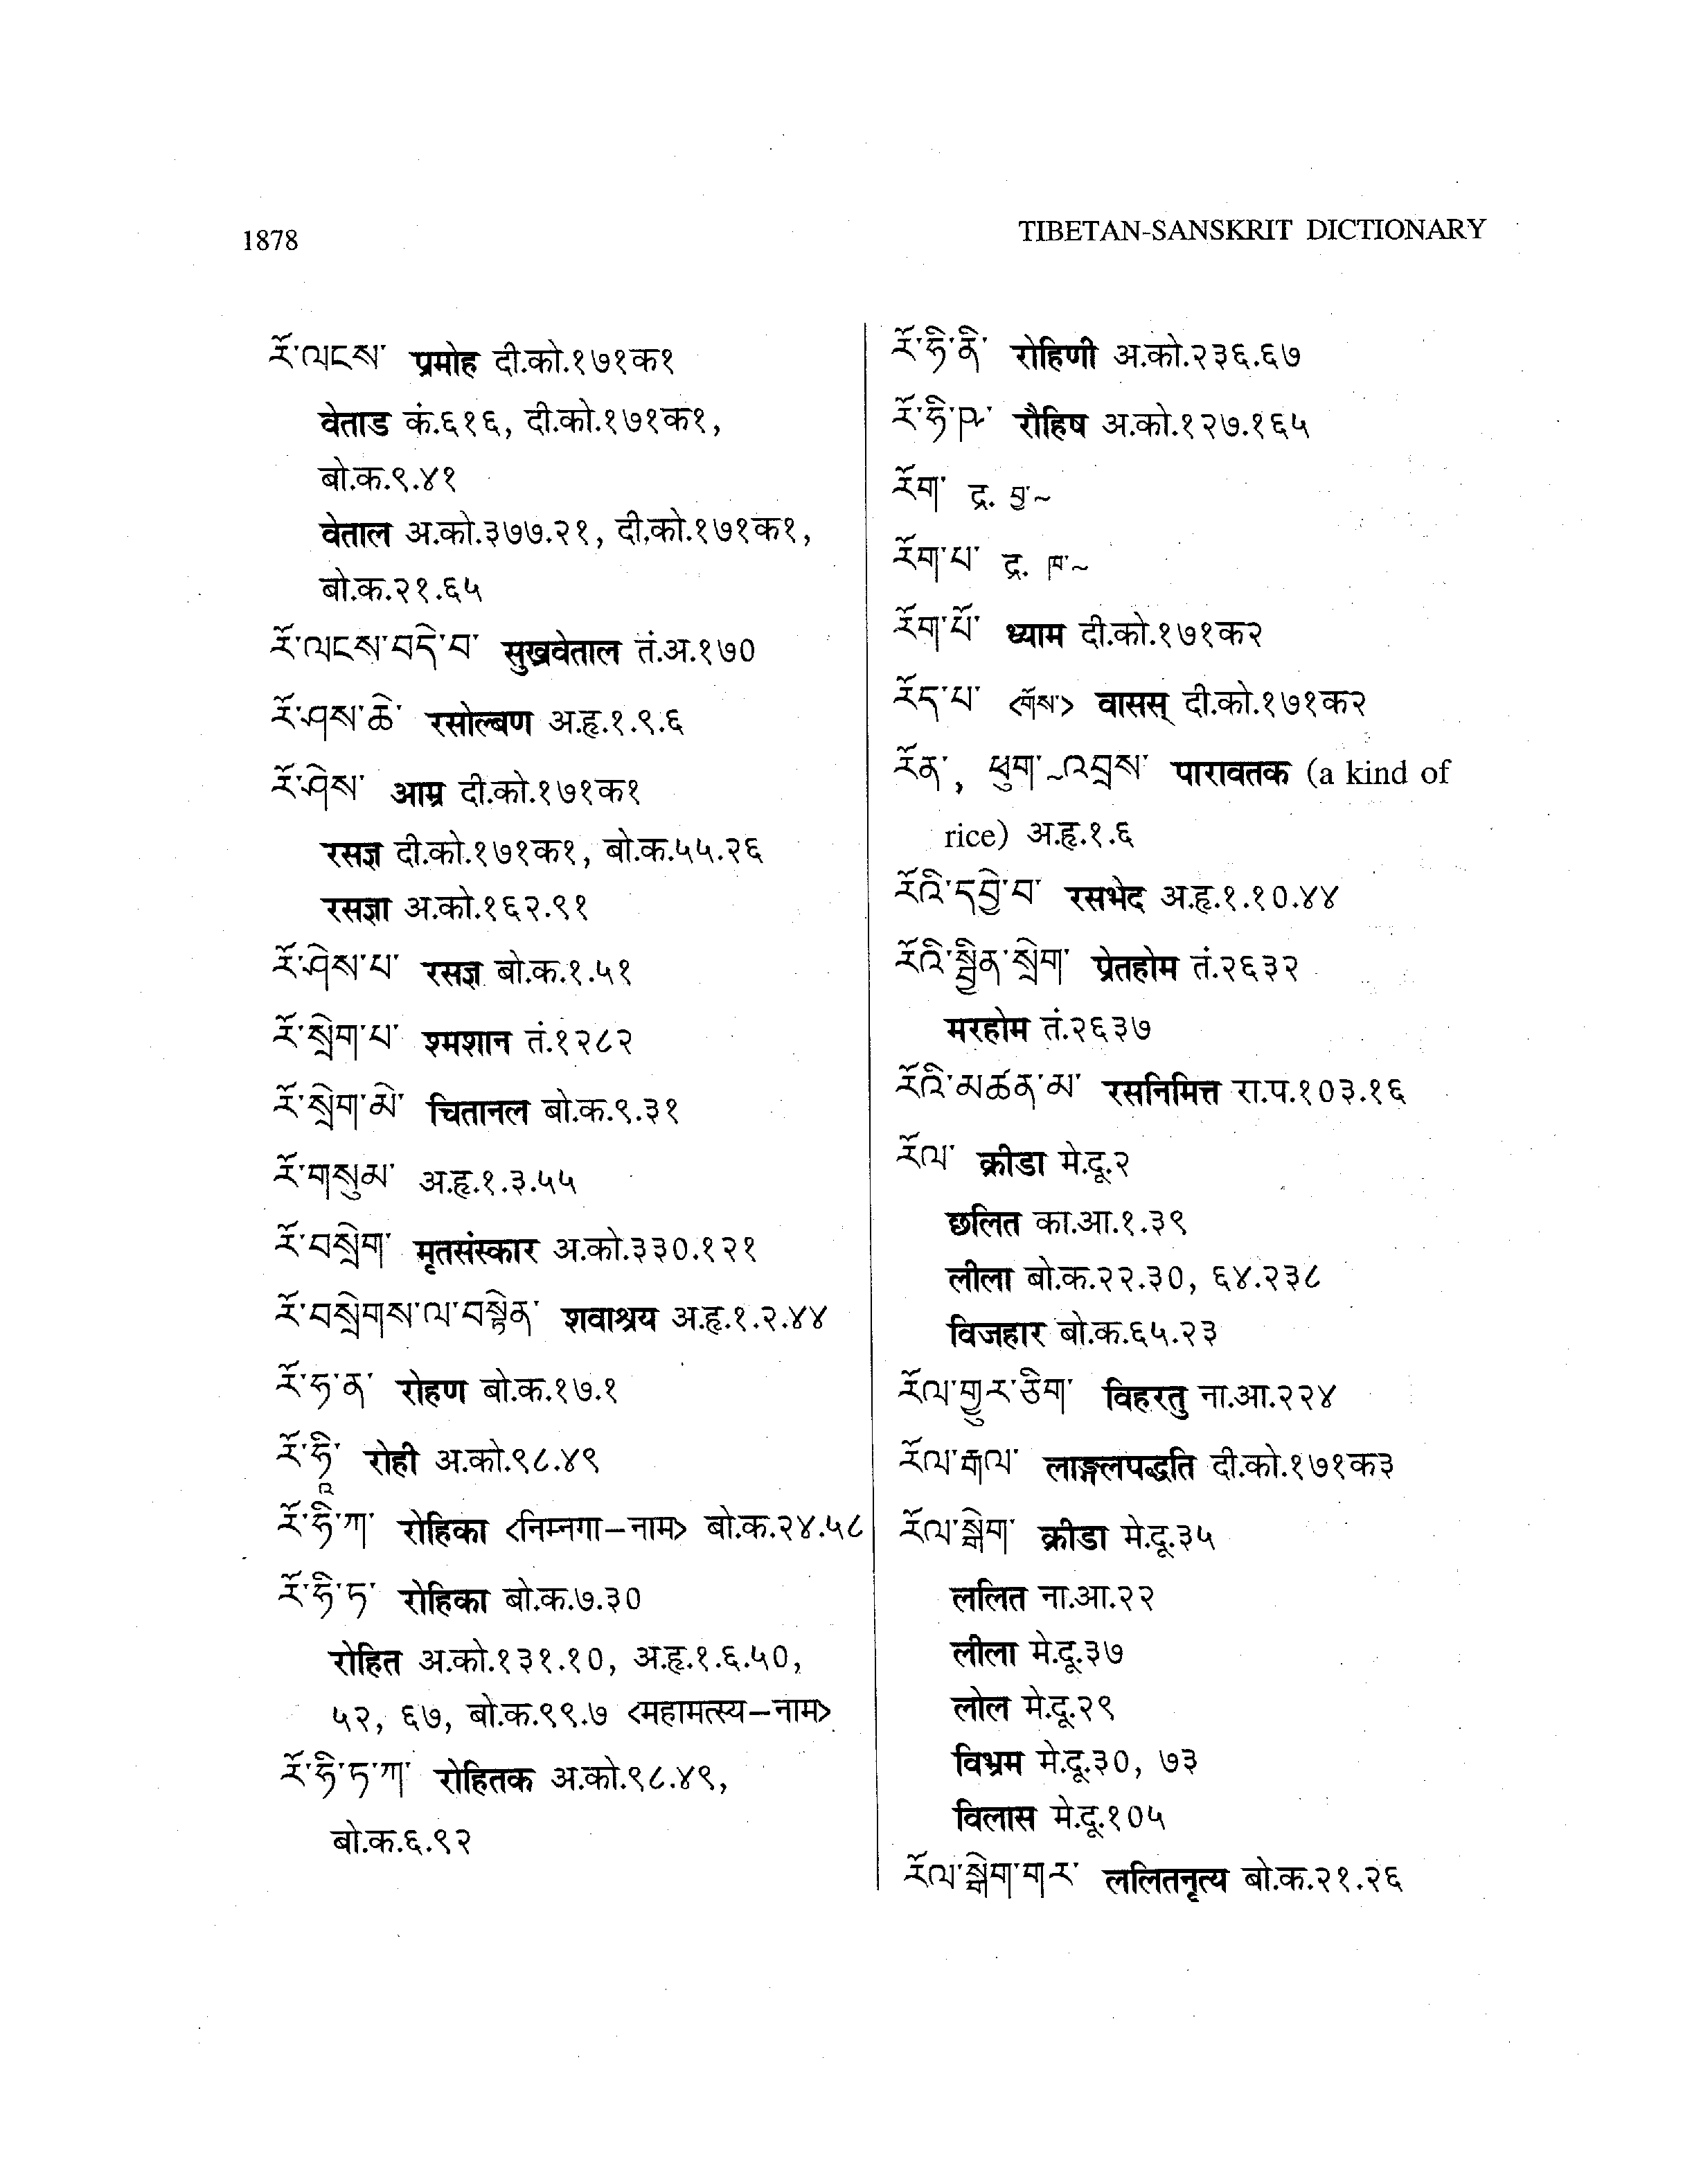 1878
TIBETAN-SANSKRIT DICTIONARY
རོ་ལངས་ प्रमोह दी.को.१७१क१
वेताड कं.६१६, दी.को.१७१क१,
बो.क.९.४१
वेताल अ.को.३७७.२१, दी.को.१७१क१,
बो.क.२१.६५
རོ་ལངས་བདེ་བ་ सुखवेताल तं.अ.१७०
རོ་ཤས་ཆེ་ रसोल्बण अ.हृ.१.९.६
རོ་ཤེས་ आम्र दी.को.१७१क१
रसज्ञ दी.को.१७१क१, बो.क.५५.२६
रसज्ञा अ.को.१६२.९१
རོ་ཤེས་པ་ रसज्ञ बो.क.१.५१
རོ་སྲེག་པ་ श्मशान तं.१२८२
རོ་སྲེག་མེ་ चितानल बो.क.९.३१
རོ་གསུམ་ अ.हृ.१.३.५५
རོ་བསྲེག་ मृतसंस्कार अ.को.३३०.१२१
རོ་བསྲེགས་ལ་བསྟེན་ शवाश्रय अ.हृ.१.२.४४
རོ་ཧ་ན་ रोहण बो.क.१७.१
རོ་ཧཱི་ रोही अ.को.९८.४९
རོ་ཧི་ཀ་ रोहिका <निम्नगा–नाम> बो.क.२४.५८
རོ་ཧི་ཏ་ रोहिका बो.क.७.३०
रोहित अ.को.१३१.१०, अ.हृ.१.६.५०,
५२, ६७, बो.क.९९.७ <महामत्स्य–नाम>
རོ་ཧི་ཏ་ཀ་ रोहितक अ.को.९८.४९,
बो.क.६.९२
རོ་ཧི་ནི་ रोहिणी अ.को.२३६.६७
རོ་ཧི་ཥ་ रौहिष अ.को.१२७.१६५
རོག་ द्र. བྱ་~
རོག་པ་ द्र. ཁ་~
རོག་པོ་ ध्याम दी.को.१७१क२
རོད་པ་ <གོས་> वासस् दी.को.१७१क२
རོན་, ཕུག་~འབྲས་ पारावतक (a kind of
rice) अ.हृ.१.६
རོའི་དབྱེ་བ་ रसभेद अ.हृ.१.१०.४४
རོའི་སྦྱིན་སྲེག་ प्रेतहोम तं.२६३२
मरहोम तं.२६३७
རོའི་མཚན་མ་ रसनिमित्त रा.प.१०३.१६
རོལ་ क्रीडा मे.दू.२
छलित का.आ.१.३९
लीला बो.क.२२.३०, ६४.२३८
विजहार बो.क.६५.२३
རོལ་གྱུར་ཅིག་ विहरतु ना.आ.२२४
རོལ་རྒལ་ लाङ्गलपद्धति दी.को.१७१क३
རོལ་སྒེག་ क्रीडा मे.दू.३५
ललित ना.आ.२२
लीला मे.दू.३७
लोल मे.दू.२९
विभ्रम मे.दू.३०, ७३
विलास मे.दू.१०५
རོལ་སྒེག་གར་ ललितनृत्य बो.क.२१.२६